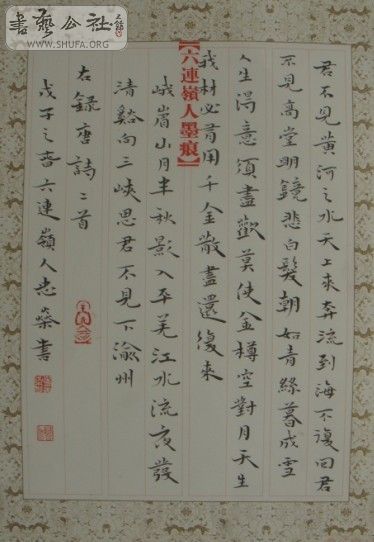 書藝公社
WWW.SHUFA.ORG
【六連嶺人墨痕】
君不見黃河之水天上來奔流到海不復回君
不見高堂明鏡悲白髮朝如青絲暮成雪
人生得意須盡歡莫使金樽空對月天生
我材必有用千金散盡還復來
峨眉山月半秋影入平羌江水流夜發
清谿向三峽思君不見下渝州
右錄唐詩二首
戊子之 六連嶺人忠 書